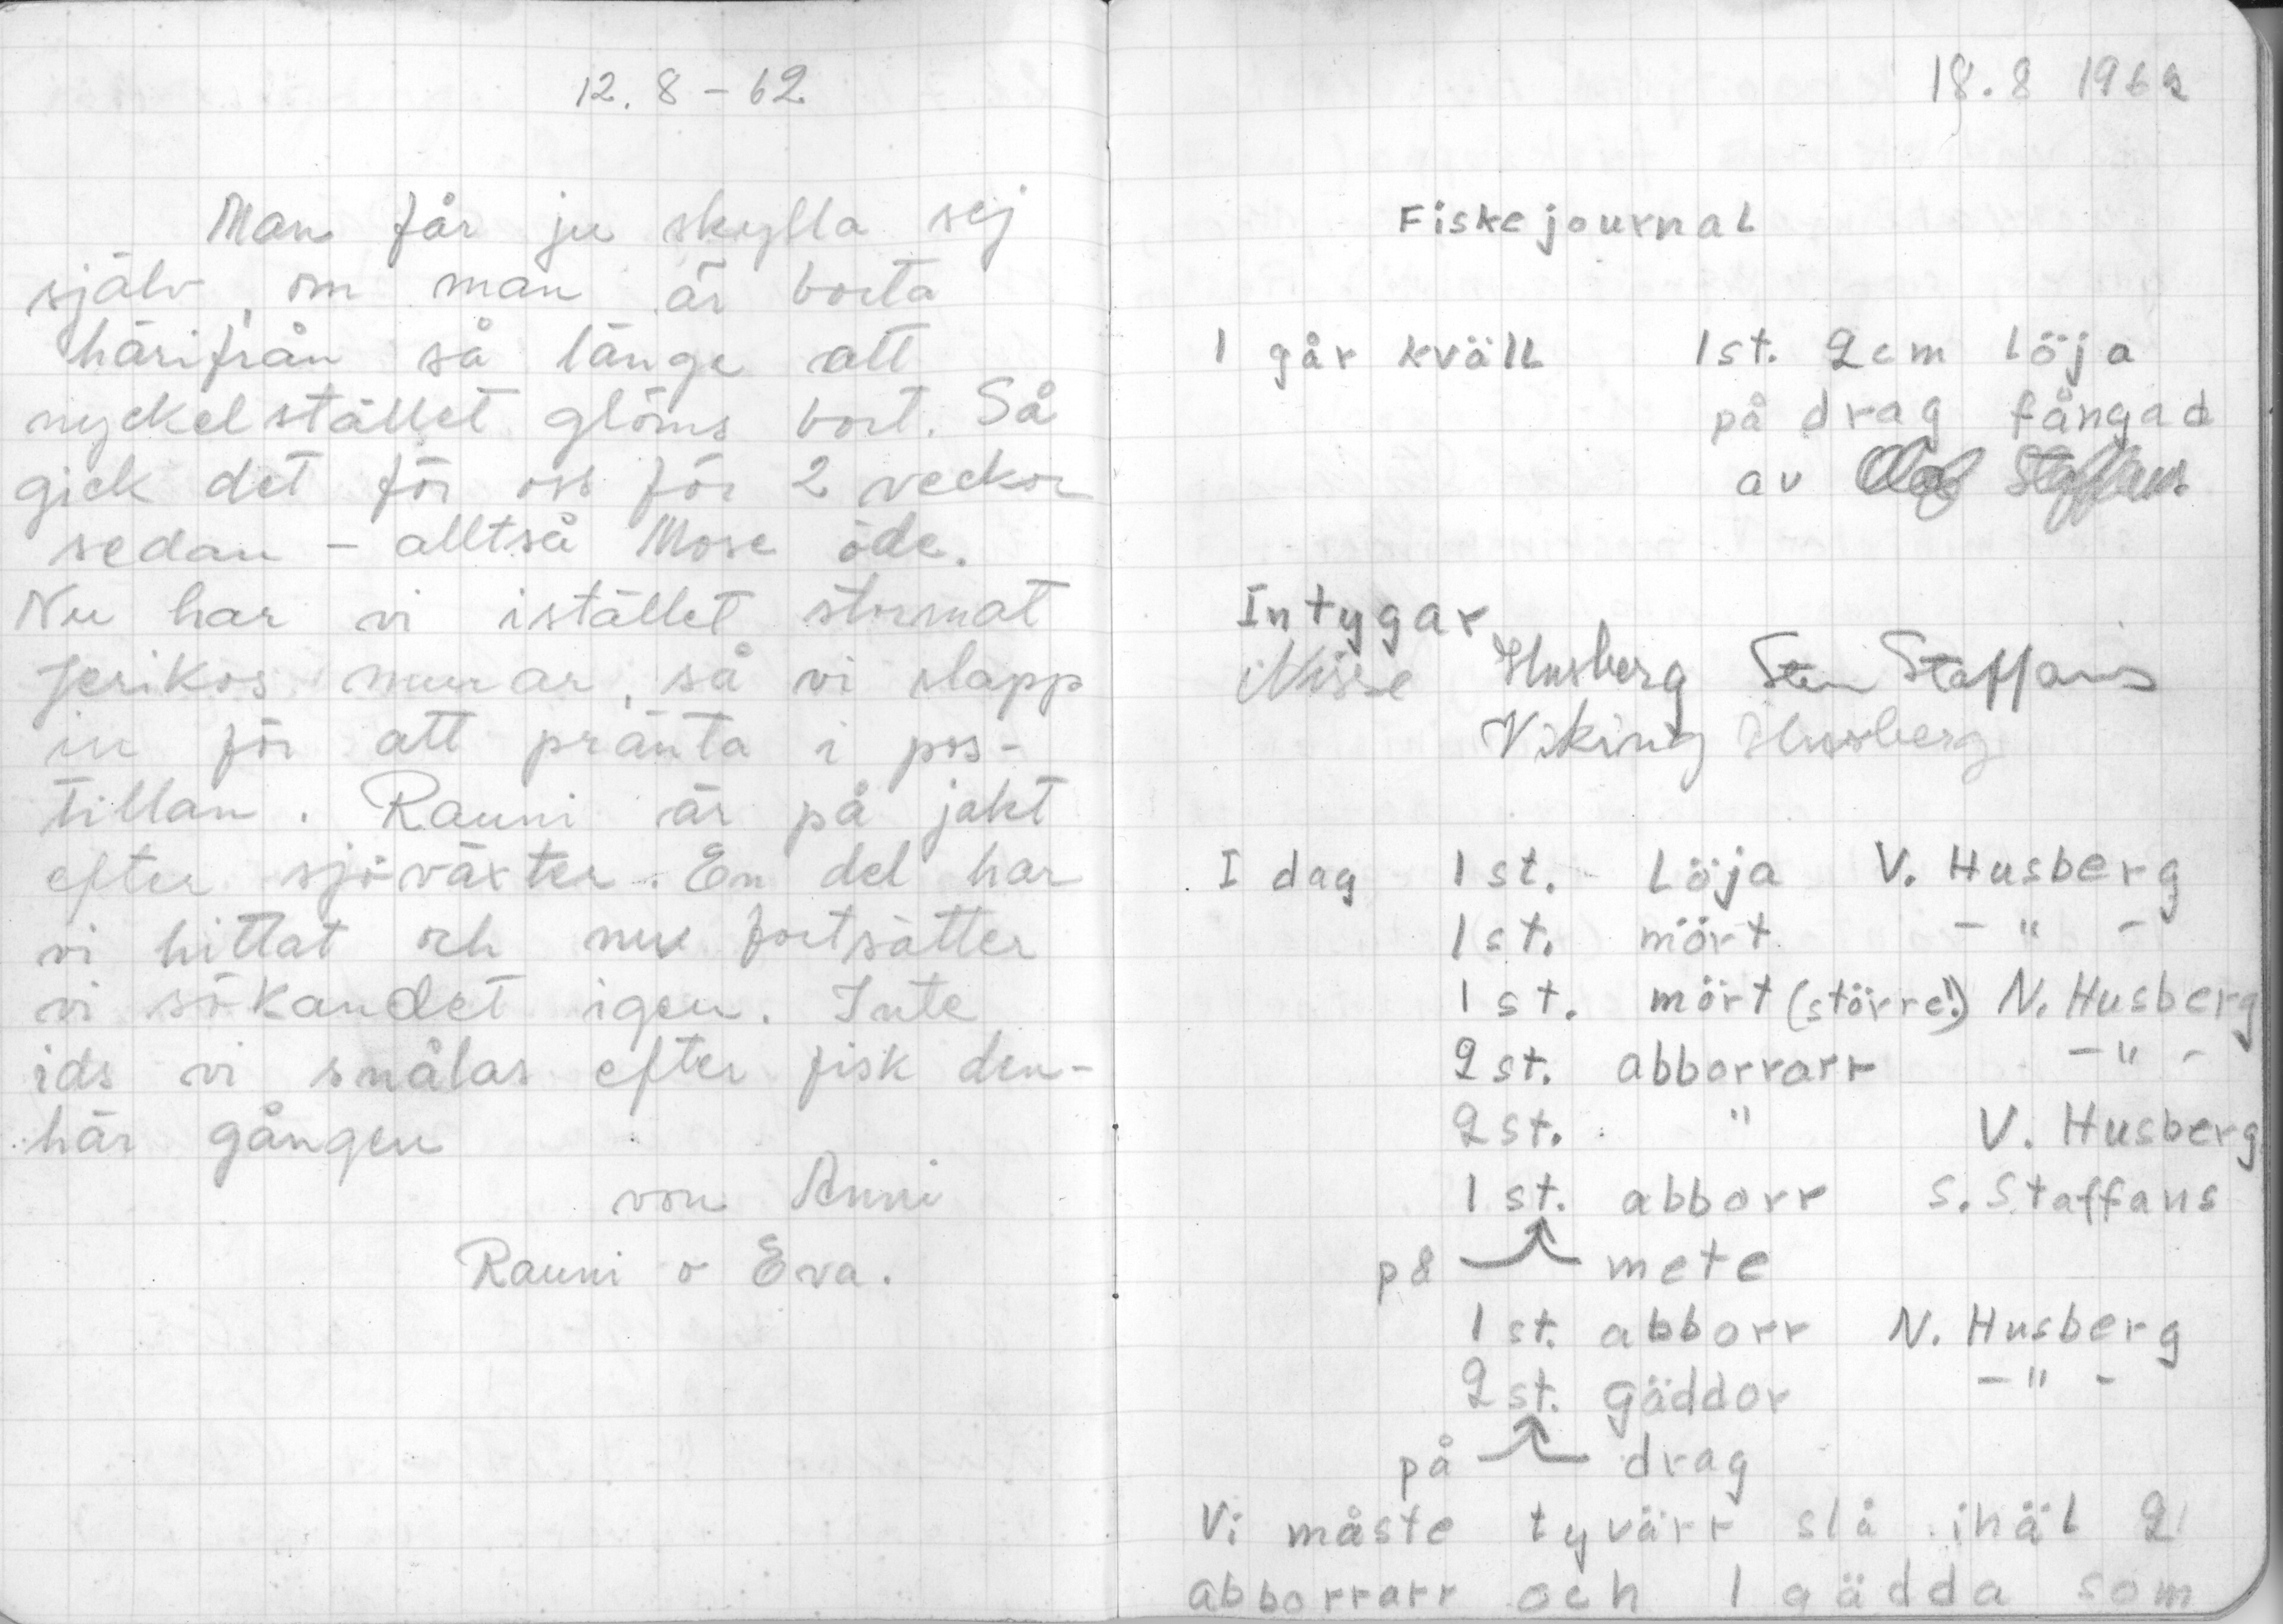 12. 8 - 62
Man får ju skylla sej
själv, om man är borta
härifrån så länge att
nyckelstället glöms bort. Så
gick det för oss för 2 veckor
sedan - alltså Mose öde.
Nu har vi istället stormat
Jerikos murar, så vi slapp
in för att pränta i pos-
tillan. Rauni är på jakt
efter sjöväxter. En del har
vi hittat och nu fortsätter
vi sökandet igen. Inte
ids vi snålas efter fisk den-
här gången
von Anni
Rauni o Eva.
18.8 1962
Fiskejournal
I går kväll 1st. 2cm Löja
på drag fångad
av Olof Staffans.
Intygar
Nisse Husberg Sten Staffans
Viking Husberg
I dag 1 st. Löja V. Husberg
1 st. mört - " -
1 st. mört (större!) N. Husberg
2 st. abborrarr - " -
2 st. " V. Husberg
1 st. abborr S. Staffans
på mete
1 st. abborr N. Husberg
2 st. gäddor - " -
på drag
Vi måste tyvärr slå ihäl 2
abborrarr och 1 gädda som